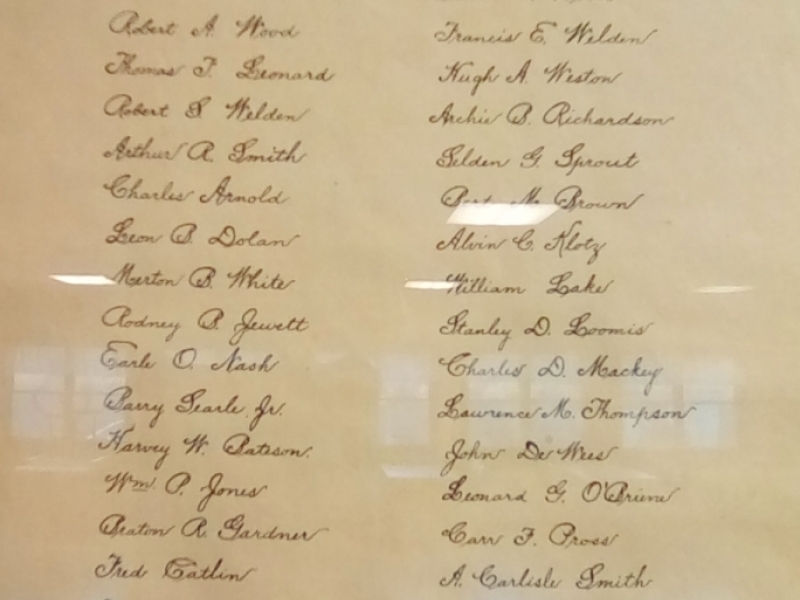 Robert A. Wood
Thomas F. Leonard
Robert S Welden
Arthur R. Smith
Charles Arnold
Leon B. Dolan
Merton B. White
Rodney B. Jewett
Earle O. Nash
Barry Searle, Jr.
Harvey W. Bateson.
Wm. P. Jones
Beaton R. Gardner
Fred Catlin
Francis E. Welden
Hugh A. Weston
Archie B. Richardson
Selden G. Sprout
Bert M. Brown
Alvin C. Klotz
William Lake
Stanley D. Loomis
Charles D. Mackey
Lawrence M. Thompson
John De Wees
Leonard G. O'Briene
Carr F. Pross
A. Carlisle Smith